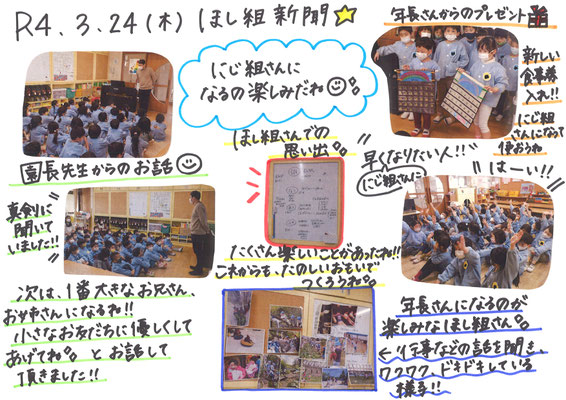 R4.3.24(木) ほし組新聞☆
にじ組さんに
なるの楽しみだね☺。
年長さんからのプレゼント
新しい
食事券
入れ!!
にじ組
さんになって
使おうね
園長先生からのお話☺
真剣に
聞いて
いました!!
ほし組さんでの
思い出。
たくさん楽しいことがあったね!!
これからも、たのしいおもいで
つくろうね。
早くなりたい人!!
にじ組さんに
はーい!!
次は、1番大きなお兄さん、
お姉さんになるね!!
小さなお友だちに優しくして
あげてね。とお話して
頂きました!!
年長さんになるのが
楽しみなほし組さん。
←行事などの話を聞き、
ワクワク、ドキドキしている
様子!!